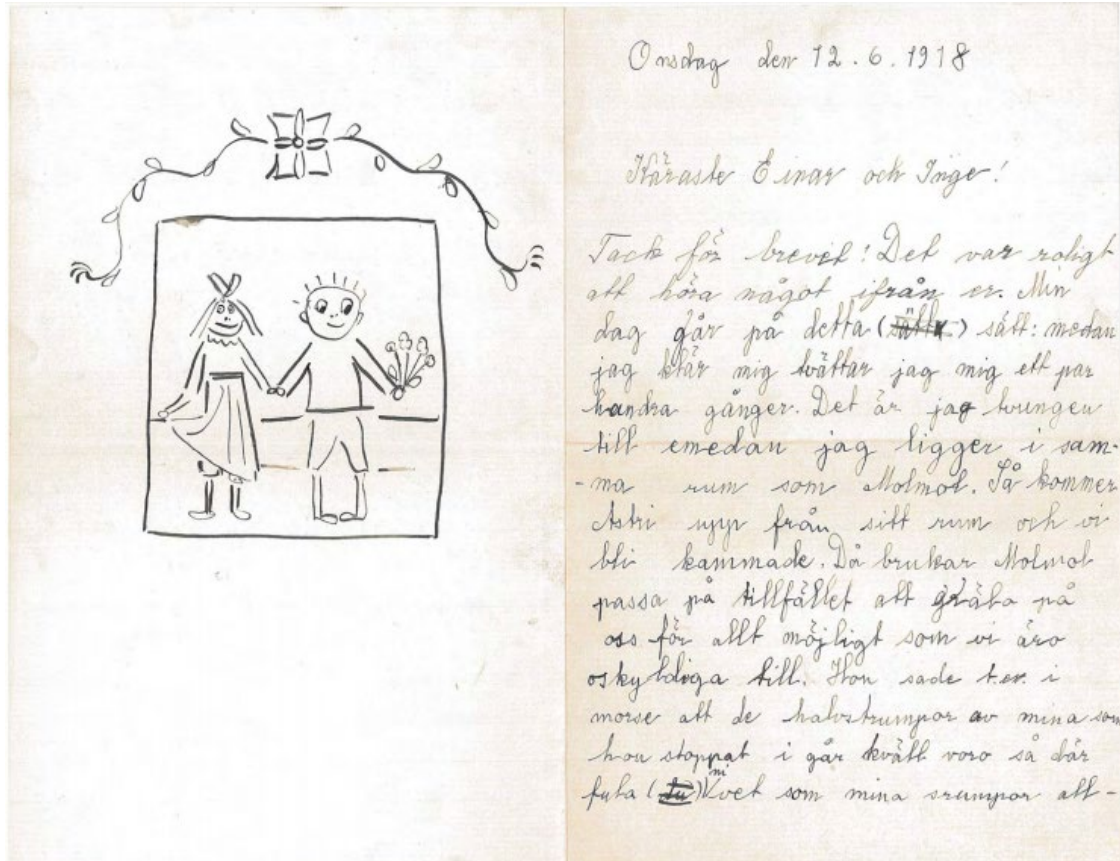 Onsdag den 12.6.1918
Käraste Einar och Inge!
Tack för brevet! Det var roligt
att höra något ifrån er. Min
dag går på detta ( ) sätt: medan
jag klär mig tvättar jag mig ett par
hundra gånger. Det är jag tvungen
till emedan jag ligger i sam-
-ma rum som Molmol. Så kommer
Astri upp från sitt rum och vi
bli kammade. Då brukar Molmol
passa på tillfället att gräla på
oss för allt möjligt som vi äro
oskyldiga till. Hon sade t.ex. i
morse att de halvstrumpor av mina som
hon stoppat i går kväll voro så där
fula (du) ni vet som mina srumpor all-